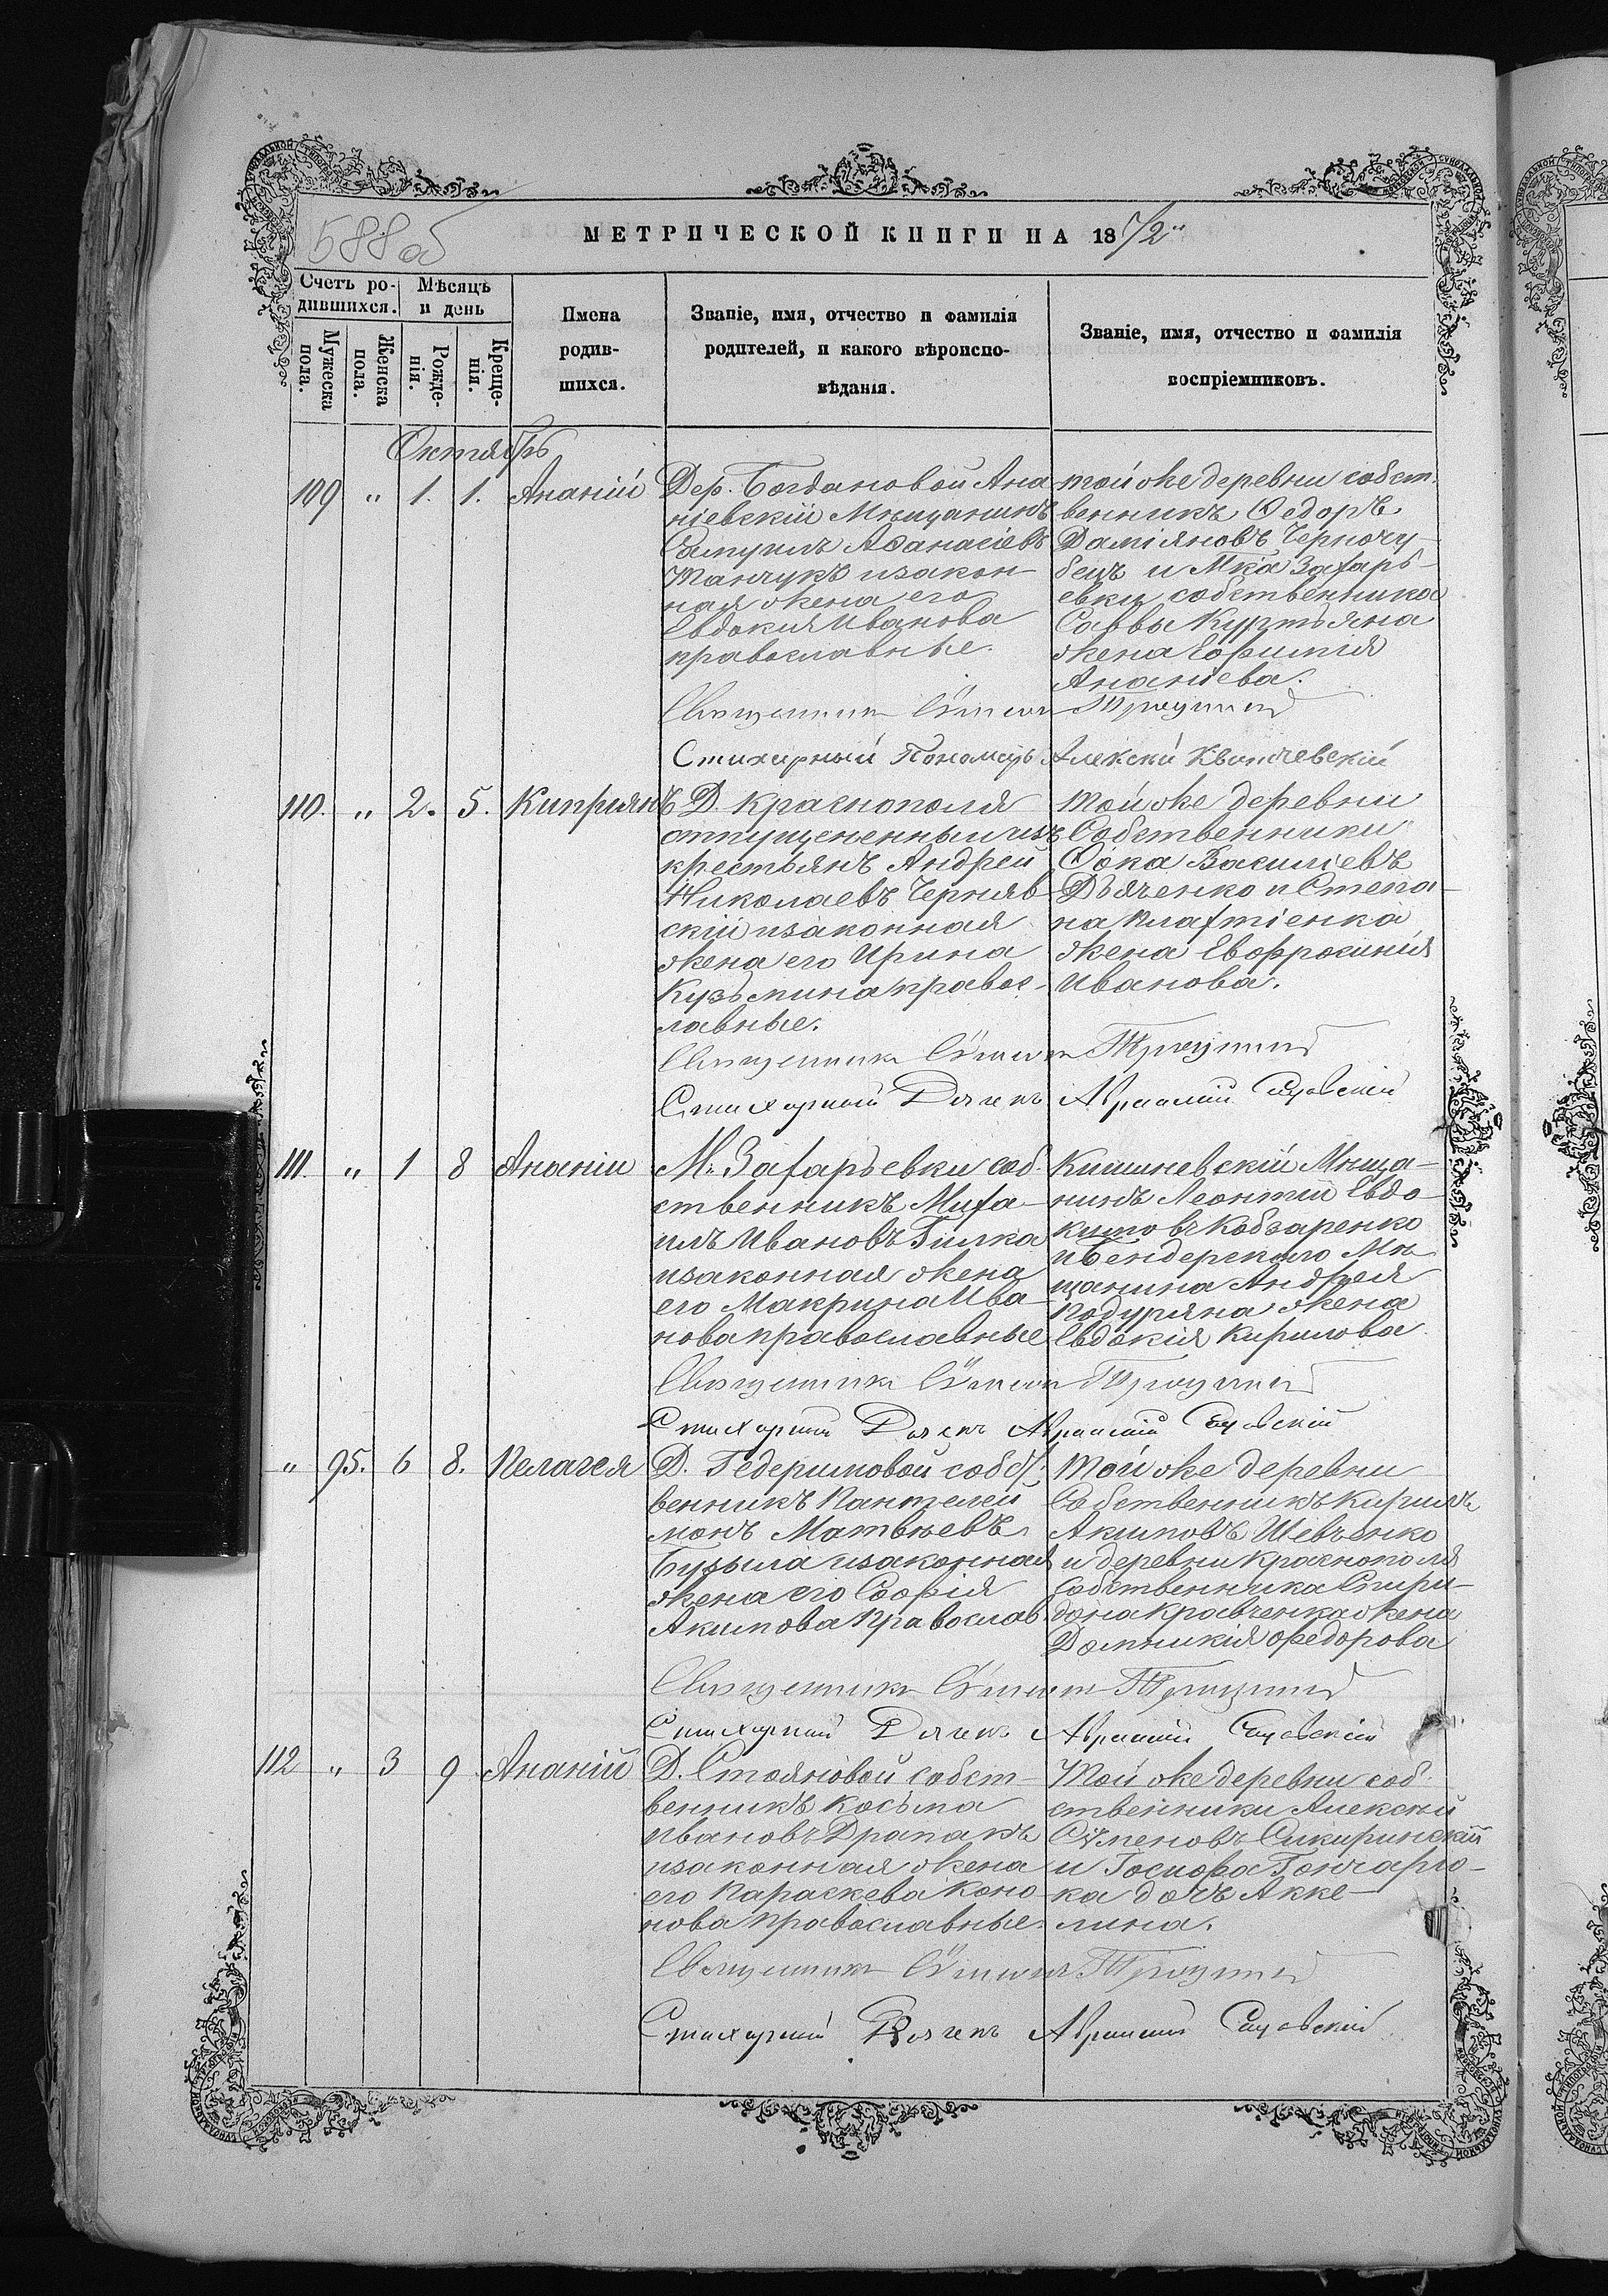 588 об
МЕТРИЧЕСКОЙ КНИГИ НА 1872
Счетъ ро-
дившихся.
Мужеска
пола.
Женска
пола.
Мѣсяцъ
и день
Рожде-
нія.
Креще-
нія.
Имена
родив-
шихся.
Званіе, имя, отчество и фамилія
родителей, и какого вѣроиспо-
вѣданія.
Званіе, имя, отчество и фамилія
воспріемниковъ.
Октябрь
109 " 1. 1. Ананій
Дер. Богдановой Ана
ніевскій Мѣщанинъ
Самуилъ Аѳанасіевъ
Танчукъ и закон-
ная жена его
Евдокия Иванова
православные.
той же деревни собст
венникъ Ѳедоръ
Даміяновъ Черногу-
бецъ и Мка Захарь-
евки собственника
Саввы Куртьяна
жена Ефимія
Ананіева.
Священник Симеон
Стихарный Пономарь Алексѣй Квитчевскій
110. " 2. 5. Киприянъ
Д. Краснополя
отпущененный изъ
крестьянъ Андрей
Николаевъ Черняв-
скій и законная
жена его Ирина
Кузьмина правос-
лавные.
Той же деревни
Собственники
Ѳока Василіевъ
Дьяченко и Степа-
на Плахтіенка
жена Евфросинія
Иванова.
Священник Симеон
Стихарный Дячекъ Авраамій Садовскій
111. " 1 8 Ананіи
М. Захарьевки соб-
ственникъ Миха-
илъ Ивановъ Гилка
и законная жена
его Макрина Ива-
нова православные
Кишиневскій Мѣща-
нинъ Леонтій Евдо-
кимовъ Кобзаренко
и Бендерского Мѣ-
щанина Андрея
Подуряна жена
Евдокія Кирилова
Священник Симеон
Стихарный Дячекъ Авраамій Садовскій
" 95. 6 8. Пелагея
Д. Гедеримовой собст
венникъ Пантелей
монъ Матвѣевъ
Бузыла и законная
жена его Софія
Акимова Православ.
Той же деревни
Собственникъ Кирилъ
Акимовъ Шевченко
и деревни Краснополя
Собственника Спири-
дона Кравченка жена
Домникія Федорова
Священник Симеон
Стихарный Дячекъ Авраамій Садовскій
112 " 3 9 Ананій
Д. Стояновой собст-
венникъ Косьма
Ивановъ Драпакъ
и законная жена
его Параскева Коно-
нова православные.
Той же деревни соб-
ственники Алексѣй
Семеновъ Сикиринскій
и Іосифа Гончарю-
ка дочь Акке-
лина.
Священник Симеон
Стихарный Дячекъ Авраамій Садовскій